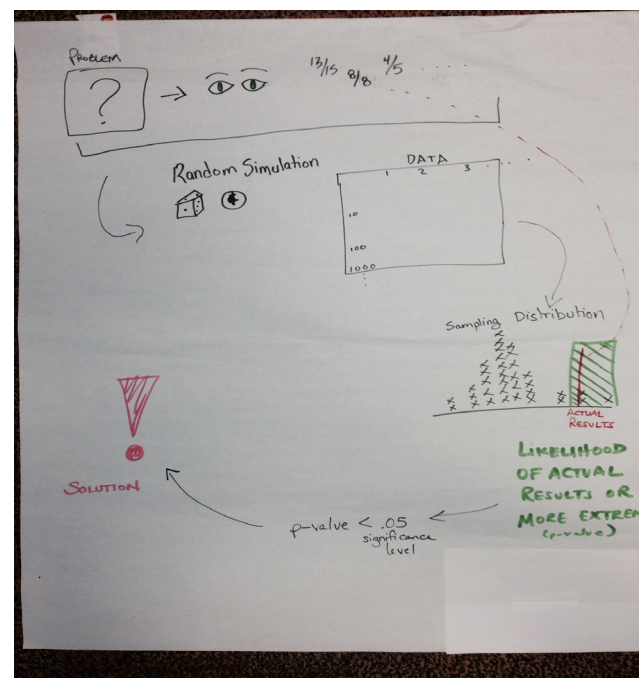 PROBLEM
?
13/15 8/8 4/5 .....
Random Simulation
DATA
1 2 3 .....
10
100
1000
Sampling Distribution
ACTUAL
RESULTS
LIKELIHOOD
OF ACTUAL
RESULTS OR
MORE EXTREM
(p-value)
p-value < .05
significance
level
SOLUTION